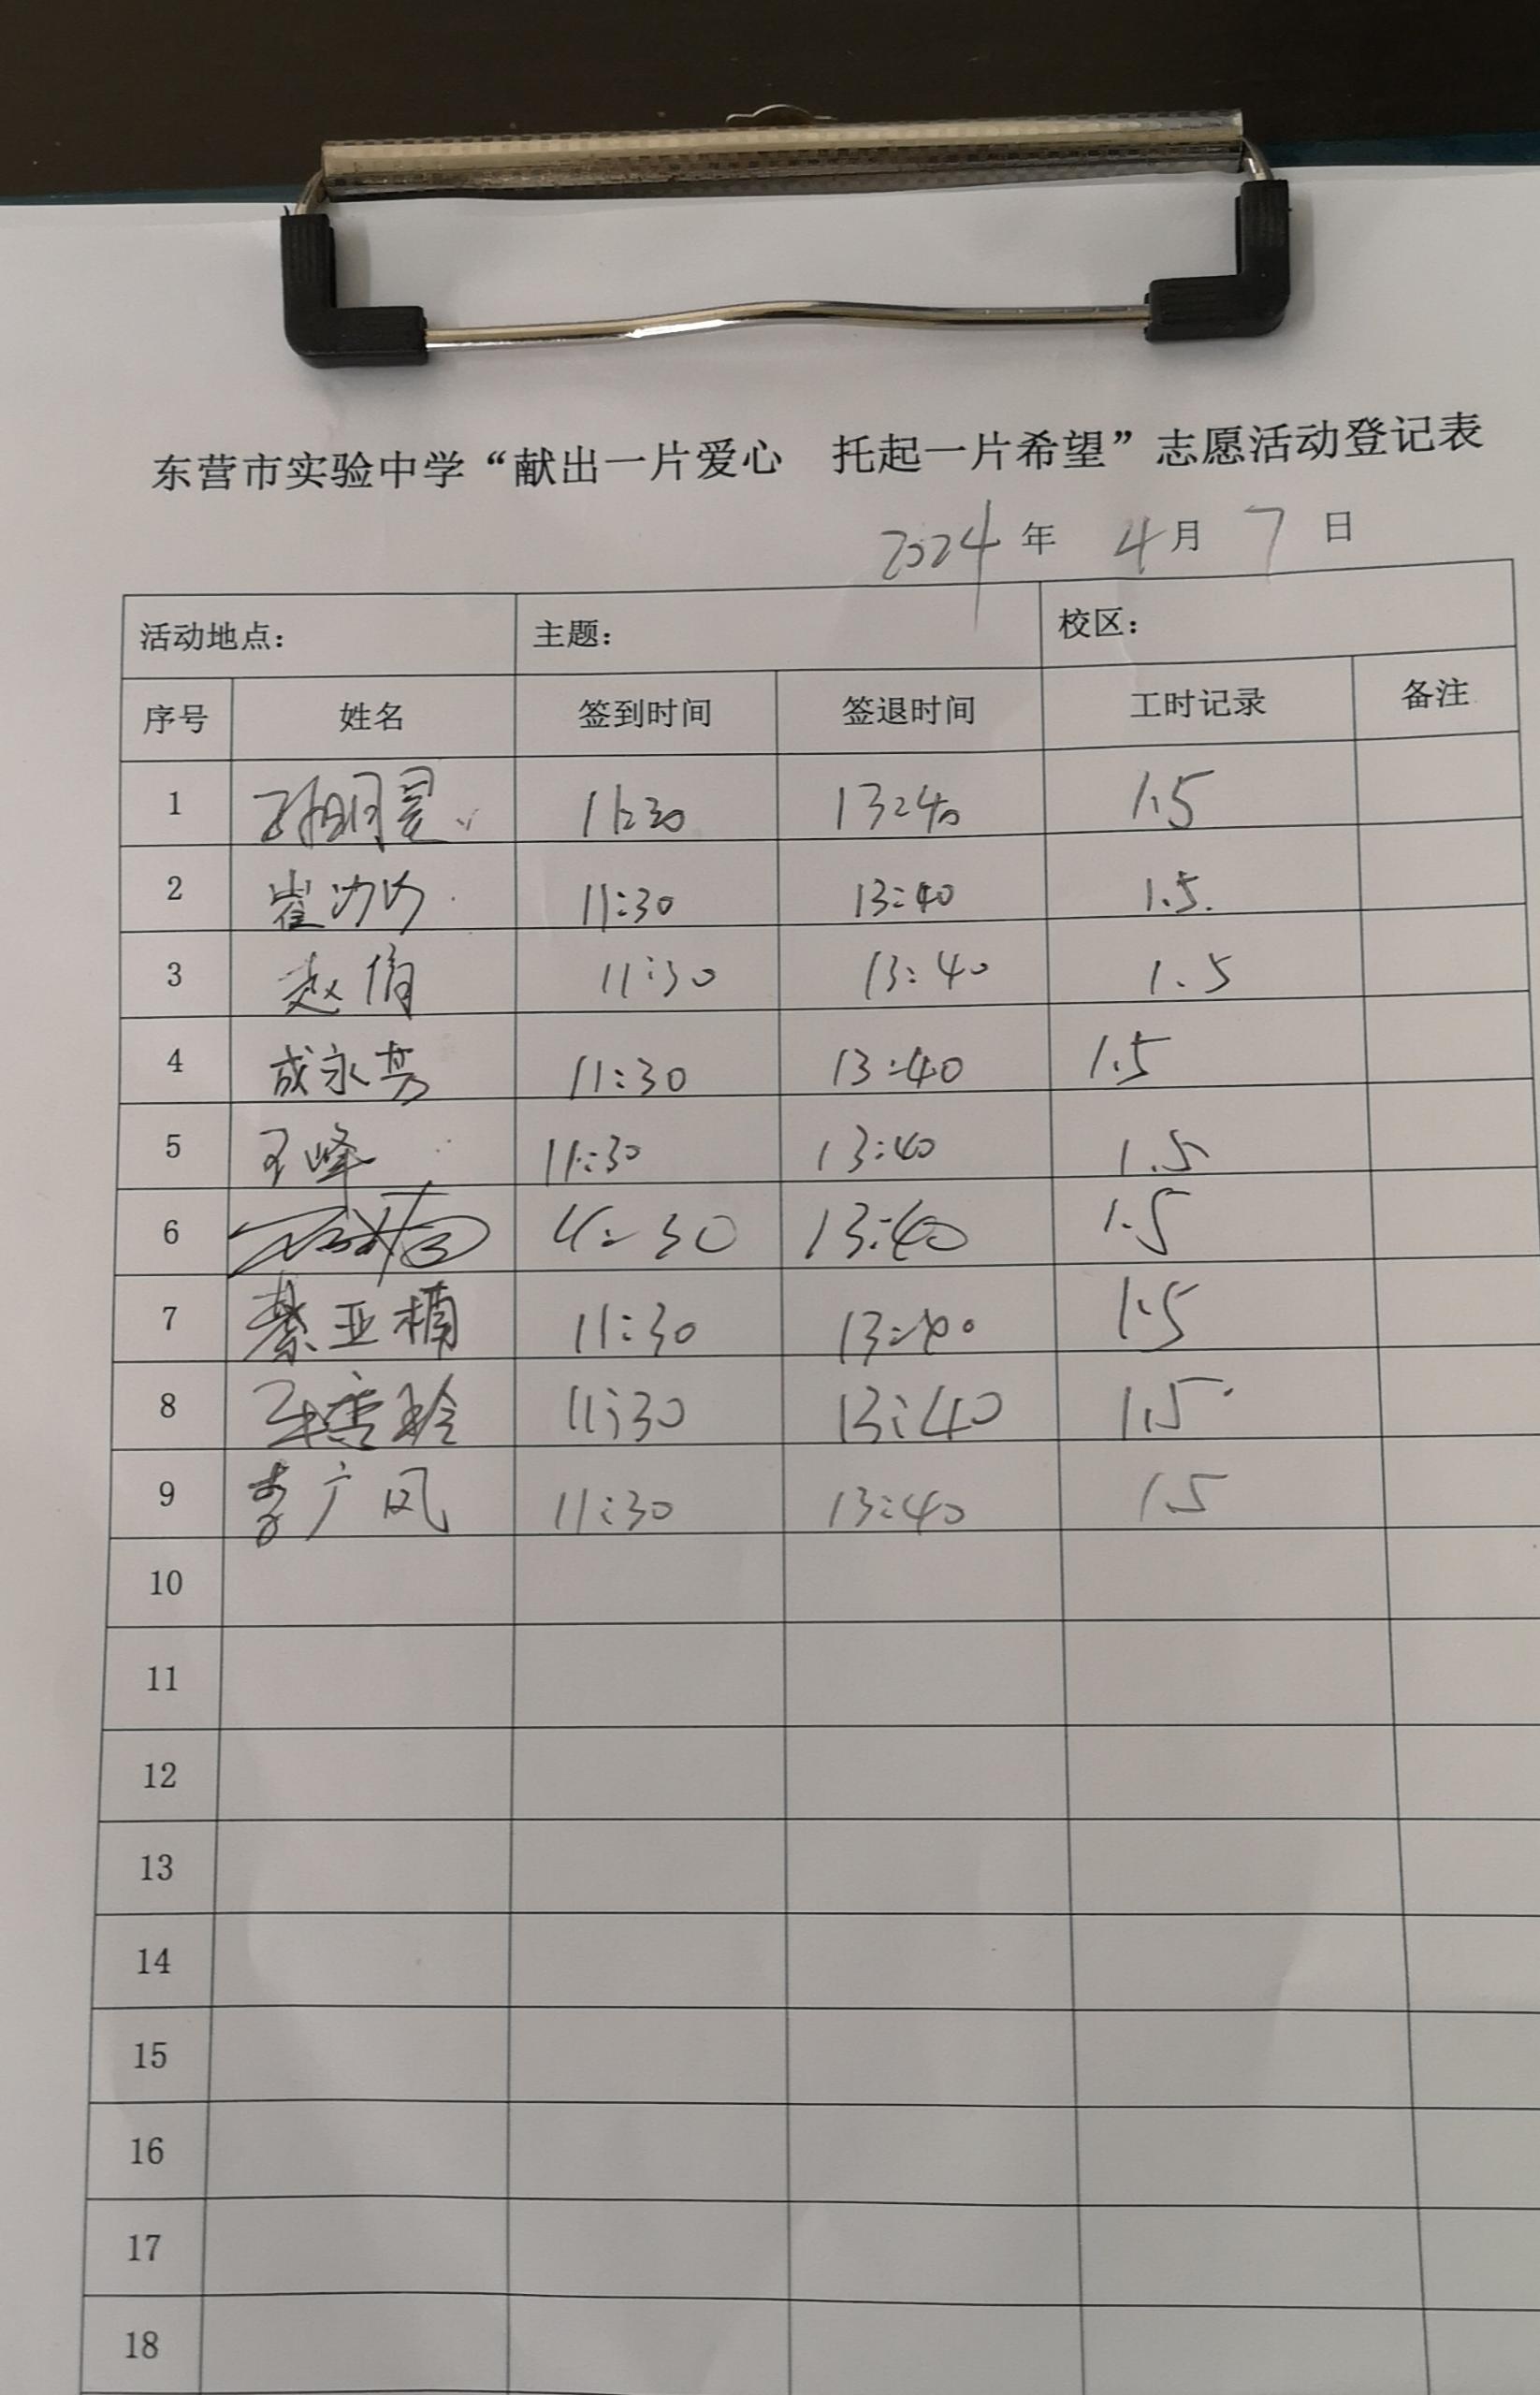 东营市实验中学“献出一片爱心 托起一片希望”志愿活动登记表
2024年 4月 7日
活动地点： 主题： 校区：
序号 姓名 签到时间 签退时间 工时记录 备注
1 孙明昊 11:30 13:40 1.5
2 崔 11:30 13:40 1.5.
3 赵倩 11:30 13:40 1.5
4 成永芳 11:30 13:40 1.5
5 王峰 11:30 13:40 1.5
6 11:30 13:40 1.5
7 綦亚楠 11:30 13:40 1.5
8 王雪玲 11:30 13:40 1.5
9 李广风 11:30 13:40 1.5
10
11
12
13
14
15
16
17
18